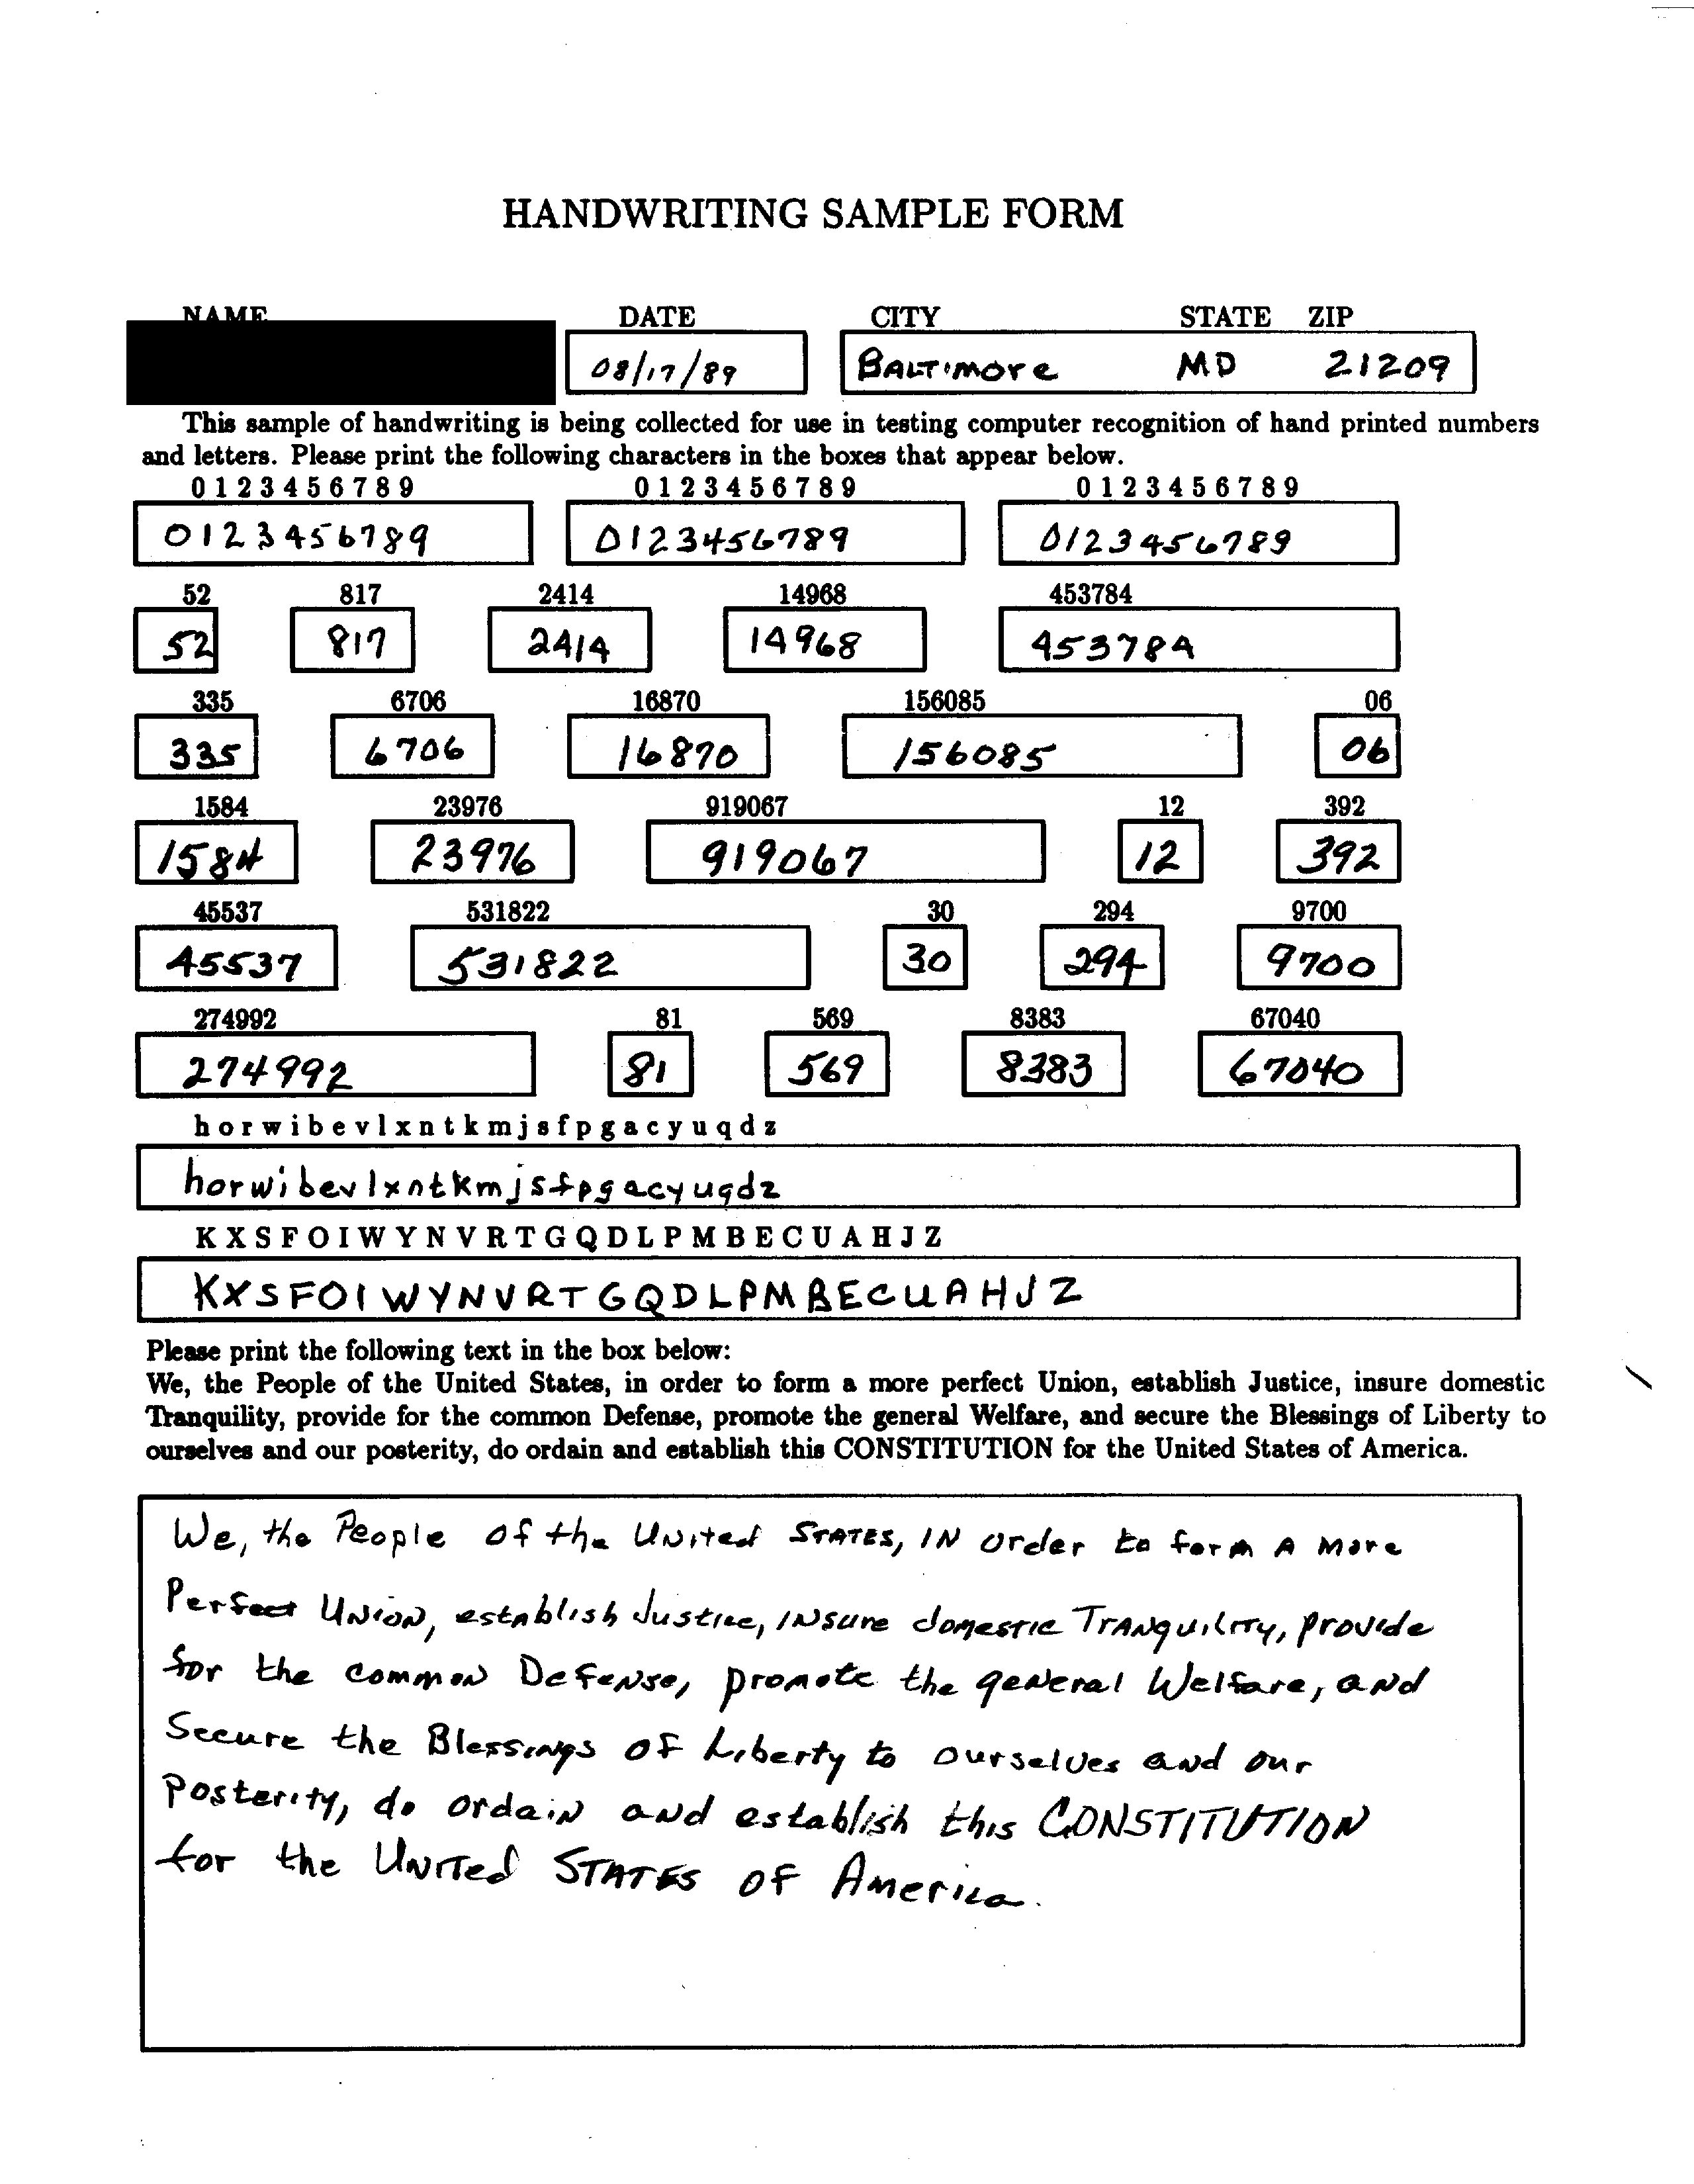 HANDWRITING SAMPLE FORM
NAME DATE CITY STATE ZIP
08/17/89 BALTiMOre MD 21209
This sample of handwriting is being collected for use in testing computer recognition of hand printed numbers
and letters. Please print the following characters in the boxes that appear below.
0 1 2 3 4 5 6 7 8 9 0 1 2 3 4 5 6 7 8 9 0 1 2 3 4 5 6 7 8 9
0123456789 0123456789 0123456789
52 817 2414 14968 453784
52 817 2414 14968 453784
335 6706 16870 156085 06
335 6706 16870 156085 06
1584 23976 919067 12 392
1584 23976 919067 12 392
45537 531822 30 294 9700
45537 531822 30 294 9700
274992 81 569 8383 67040
274992 81 569 8383 67040
h o r w i b e v l x n t k m j s f p g a c y u q d z
horwibevlxntkmjsfpgacyuqdz
K X S F O I W Y N V R T G Q D L P M B E C U A H J Z
KXSFOIWYNVRTGQDLPMBECUAHJZ
Please print the following text in the box below:
We, the People of the United States, in order to form a more perfect Union, establish Justice, insure domestic
Tranquility, provide for the common Defense, promote the general Welfare, and secure the Blessings of Liberty to
ourselves and our posterity, do ordain and establish this CONSTITUTION for the United States of America.
We, the People of the UNited STATES, IN order to form A More
Perfect UNiON, estAblish Justice, INsure domestic TRANquiliTy, provide
for the commoN DefeNse, promote the geNeral Welfare, aNd
Secure the BlessiNgs of Liberty to ourselves aNd our
Posterity, do ordaiN aNd establish this CONSTITUTION
for the UNiTed STATES OF AMerica.